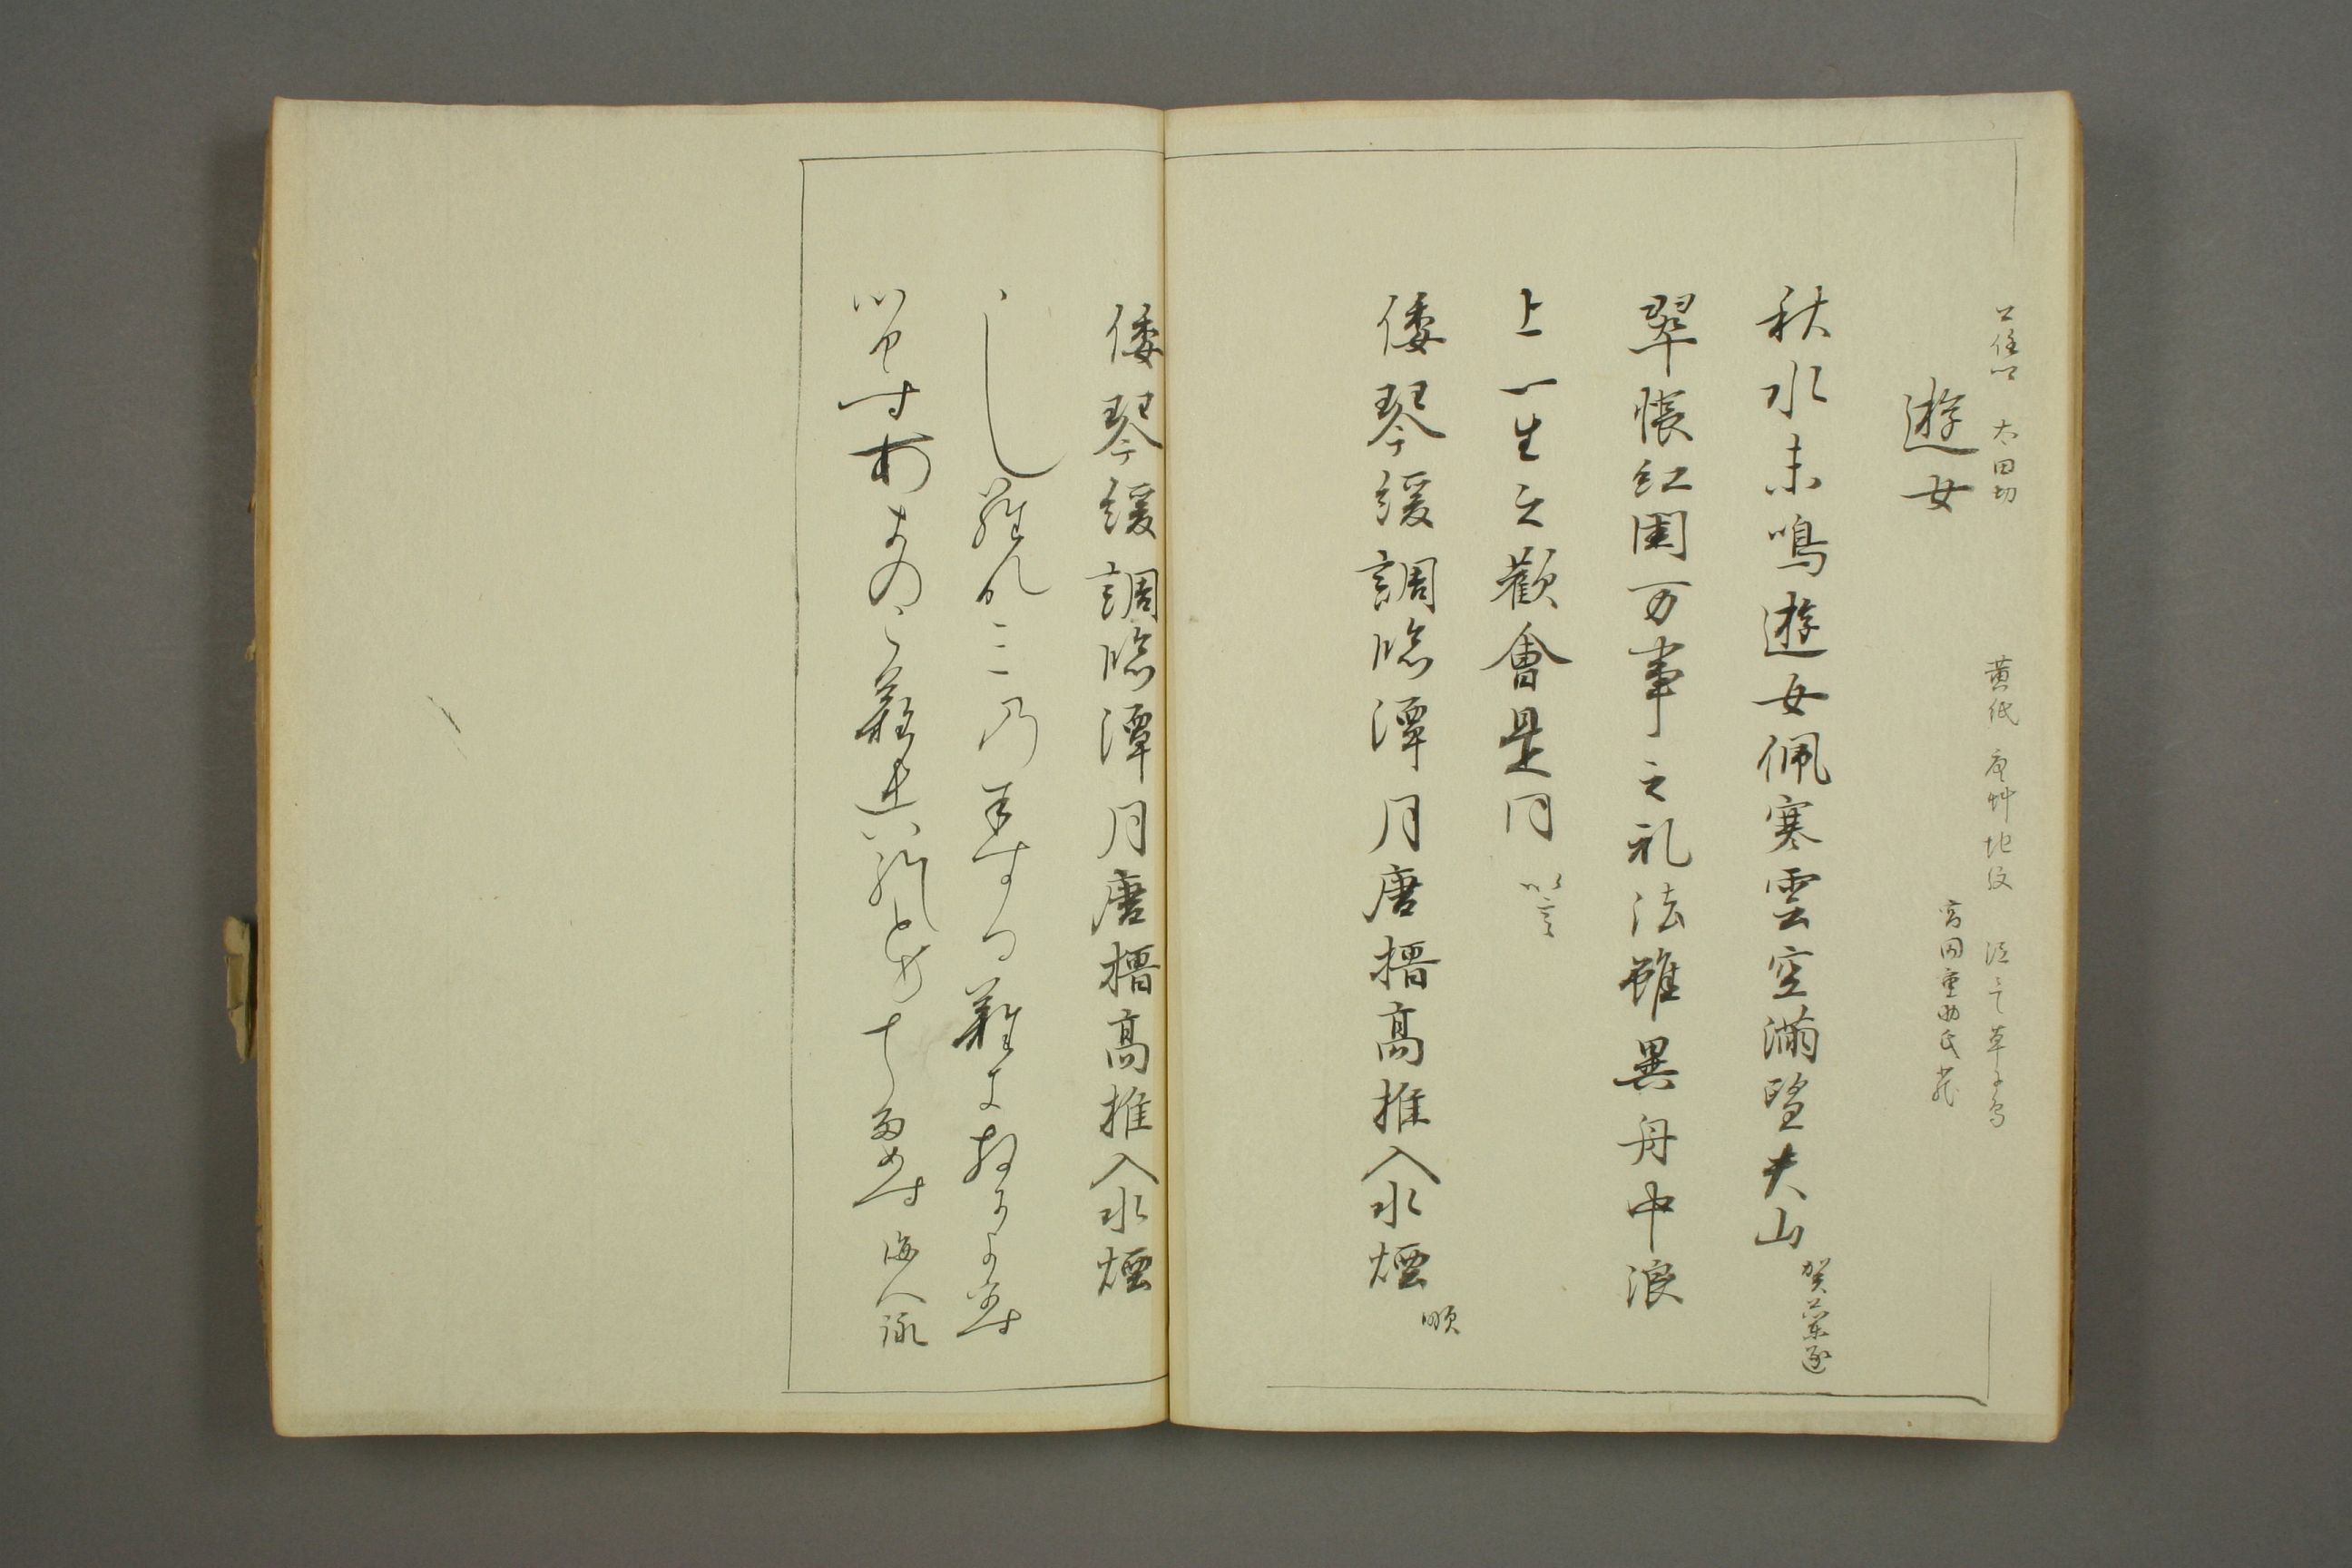 公任卿 太田切 黄紙 唐艸地紋 泥ニテ草
富田重助氏蔵
遊女
秋水未鳴遊女佩寒雲空満望夫山 賀蘭遂
翠帳紅閨万事之礼法雖異舟中浪
上一生之歡會是同 以言
倭琴緩調臨潭月唐櫓高推入水煙 順
倭琴緩調臨潭月唐櫓高推入水煙
しらなみのよするなきさに
あまのこなれはやともさためす 海人詠